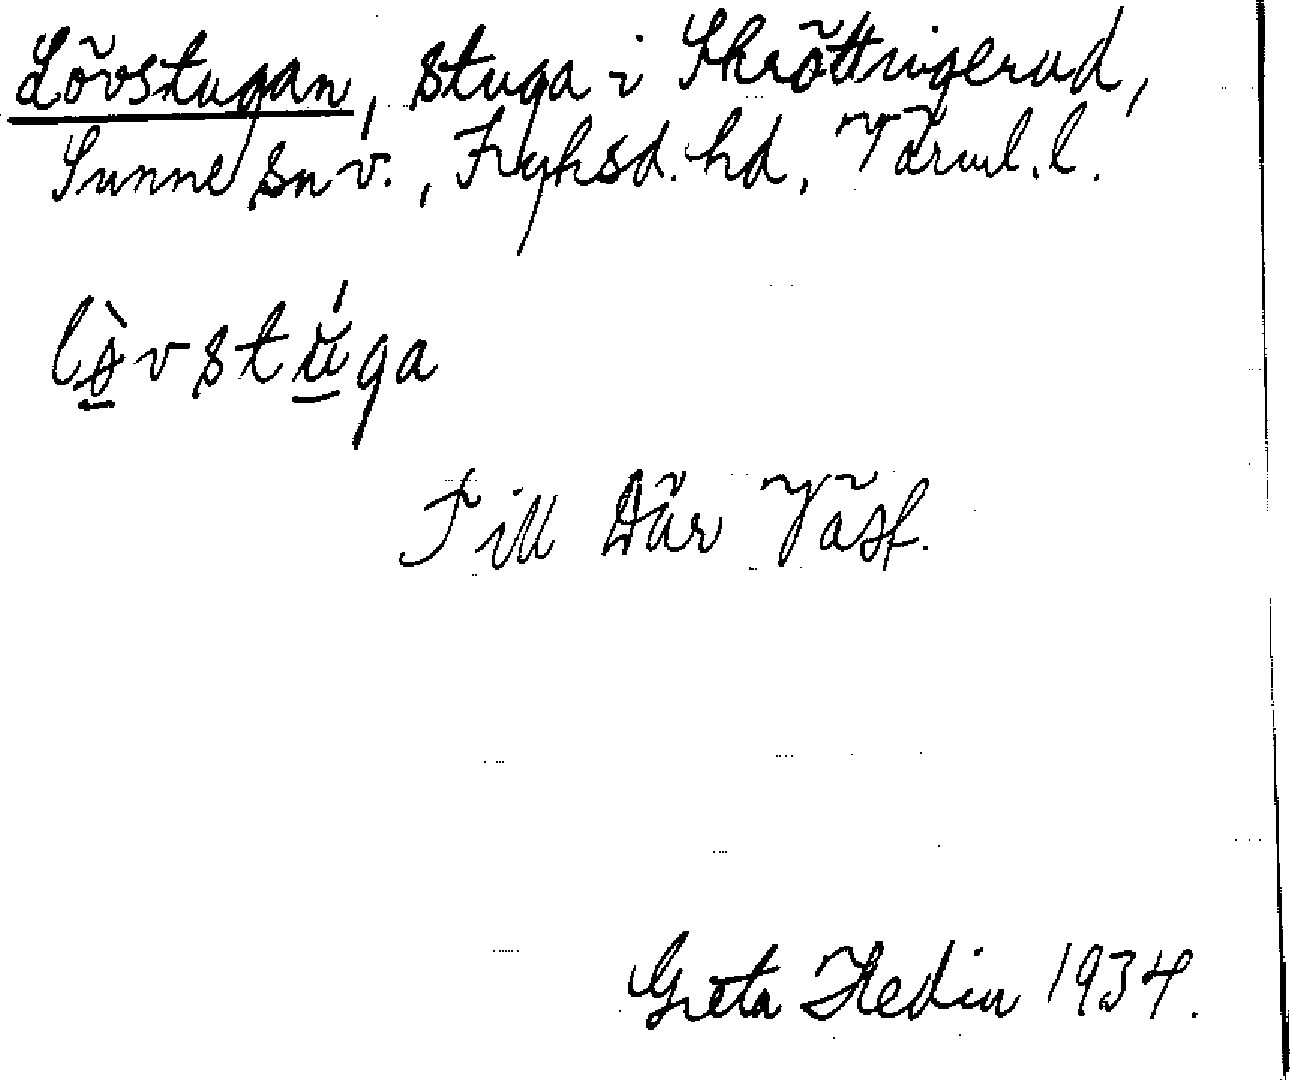 Lövstugan, stuga i Skröttrigerud,
Sunne sn v., Fryksd. hd, Värml. l.
lèvstúga
Till Där Väst.
Greta Hedin 1934.